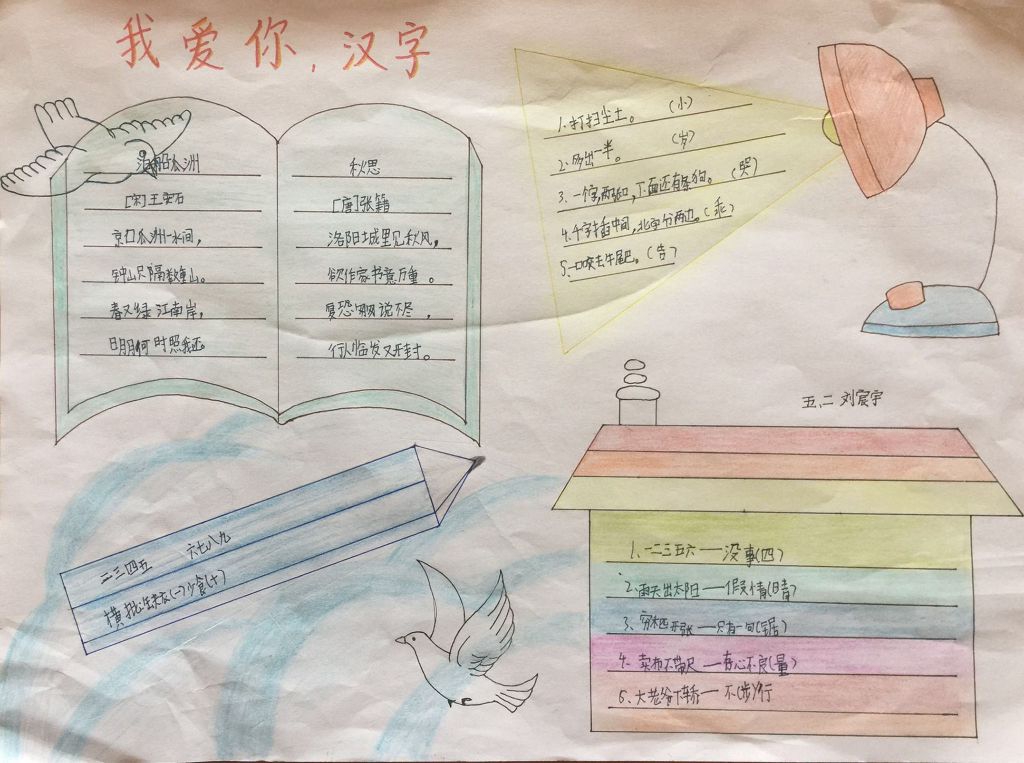 我爱你,汉字
泊船瓜洲
[宋]王安石
京口瓜洲一水间,
钟山只隔数重山。
春又绿江南岸,
明月何时照我还。
秋思
[唐]张籍
洛阳城里见秋风,
欲作家书意万重。
复恐匆匆说不尽,
行人临发又开封。
1.打扫尘土。(小)
2.多出一半。(岁)
3.一个字,两张口,下面还有条狗。(哭)
4.千字插中间,北字分两边。(乖)
5.一口咬去牛尾巴。(告)
五、二 刘宸宇
二三四五 六七八九
横批:缺衣(一)少食(十)
1、一二三五六——没事(四)
2、雨天出太阳——假情(晴)
3、——只有一句(锯)
4、卖布不带尺——存心不良(量)
5、大老爷下轿——不(步)行